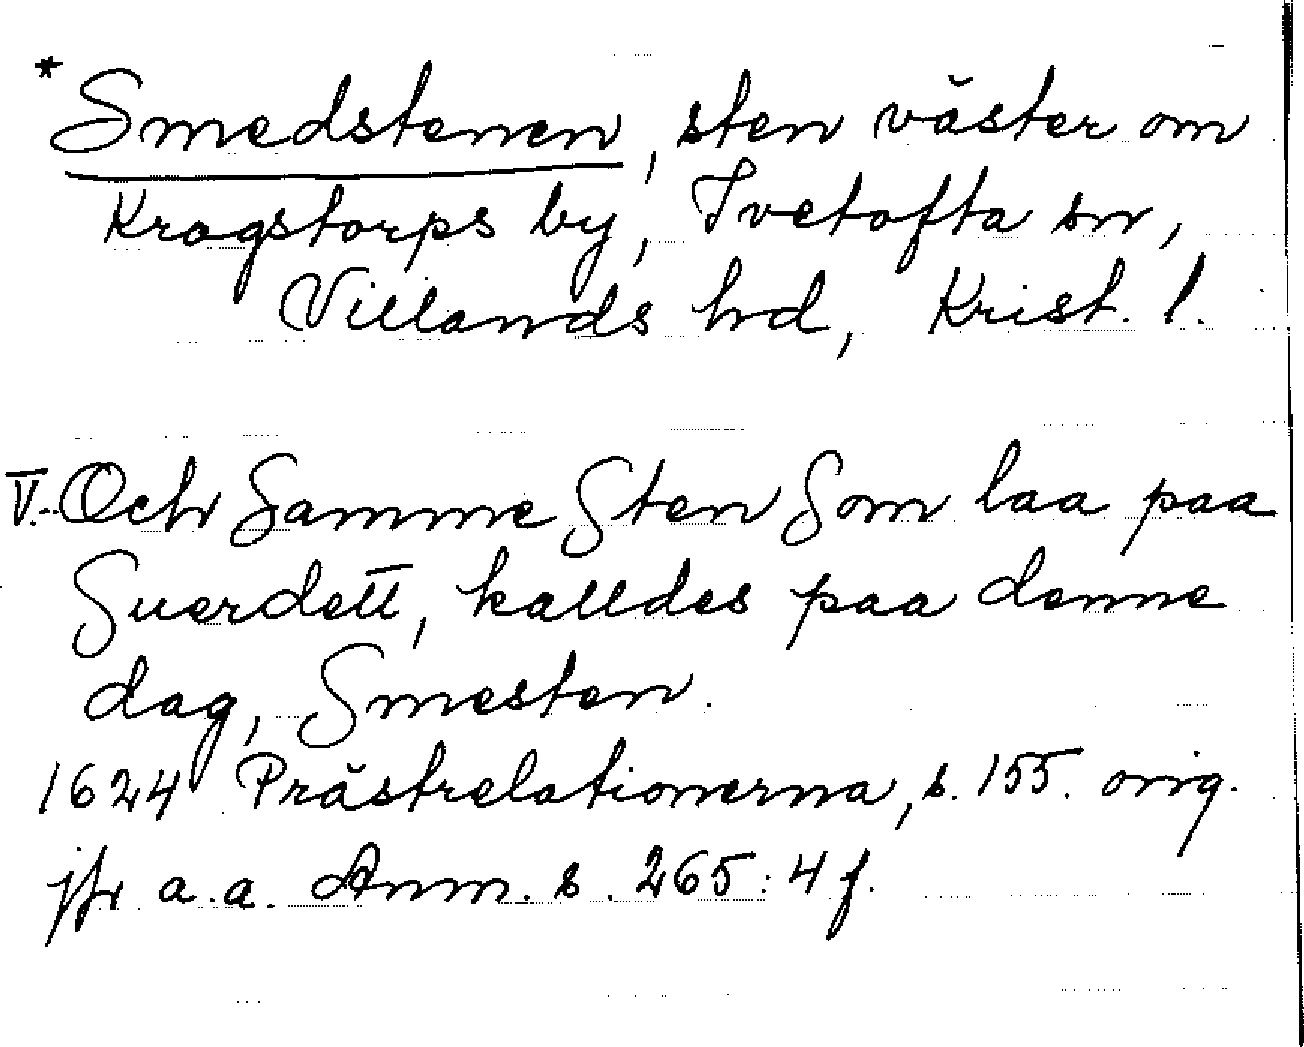 * Smedstenen, sten väster om
Kragstorps by, Ivetofta sn,
Villands hd, Krist. l.
V. Och Samme Sten Som laa paa
Suerdett, kalldes paa denne
dag, Smesten.
1624 Prästrelationerna, s. 155. orig.
jfr a.a. Anm. s. 265:4 f.